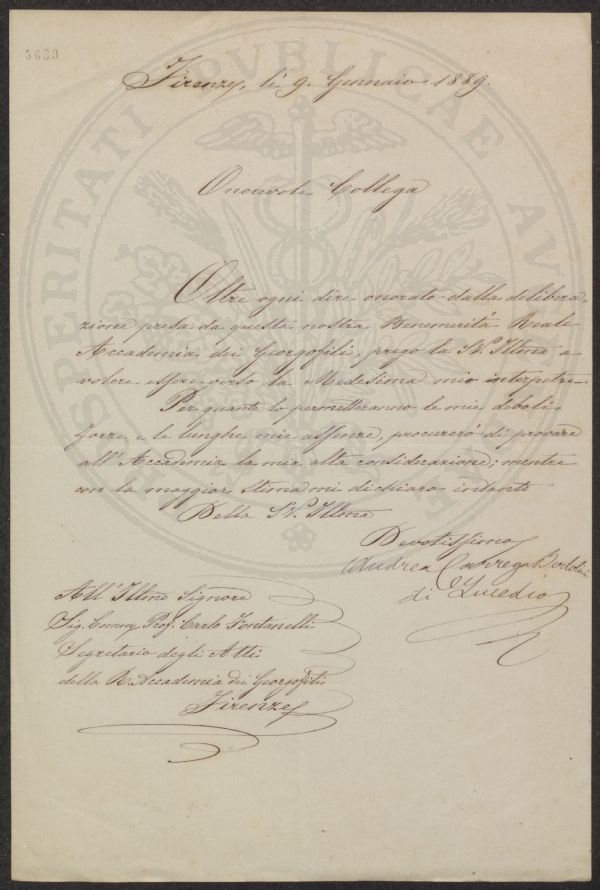 5689
Firenze, li 9. Gennaio 1889.
Onorevole Collega
Oltre ogni dire onorato dalla delibera-
zione presa da questa nostra Benemerita Reale
Accademia dei Georgofili, prego la S. V. Illma a
volere essere verso la Medesima mio interpetre.
Per quanto lo permetteranno le mie deboli
forze, e le lunghe mie assenze, procurerò di provare
all'Accademia la mia alta considerazione; mentre
con la maggior stima mi dichiaro intanto
Della S. V. Illma
Devotissimo
Andrea Carrega Bertolini
di Lucedio
All'Illmo Signore
Sig. Comm. Prof. Carlo Fontanelli
Segretario degli Atti
della R. Accademia dei Georgofili
Firenze
PROSPERITATI PVBLICAE AV